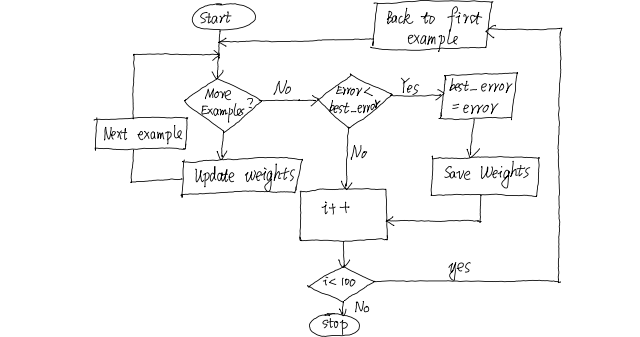 Start
Back to first
example
More
Examples?
No
Error<
best_error
Yes
best_error
=error
Next example
No
Update weights
Save Weights
i++
i<100
yes
No
stop